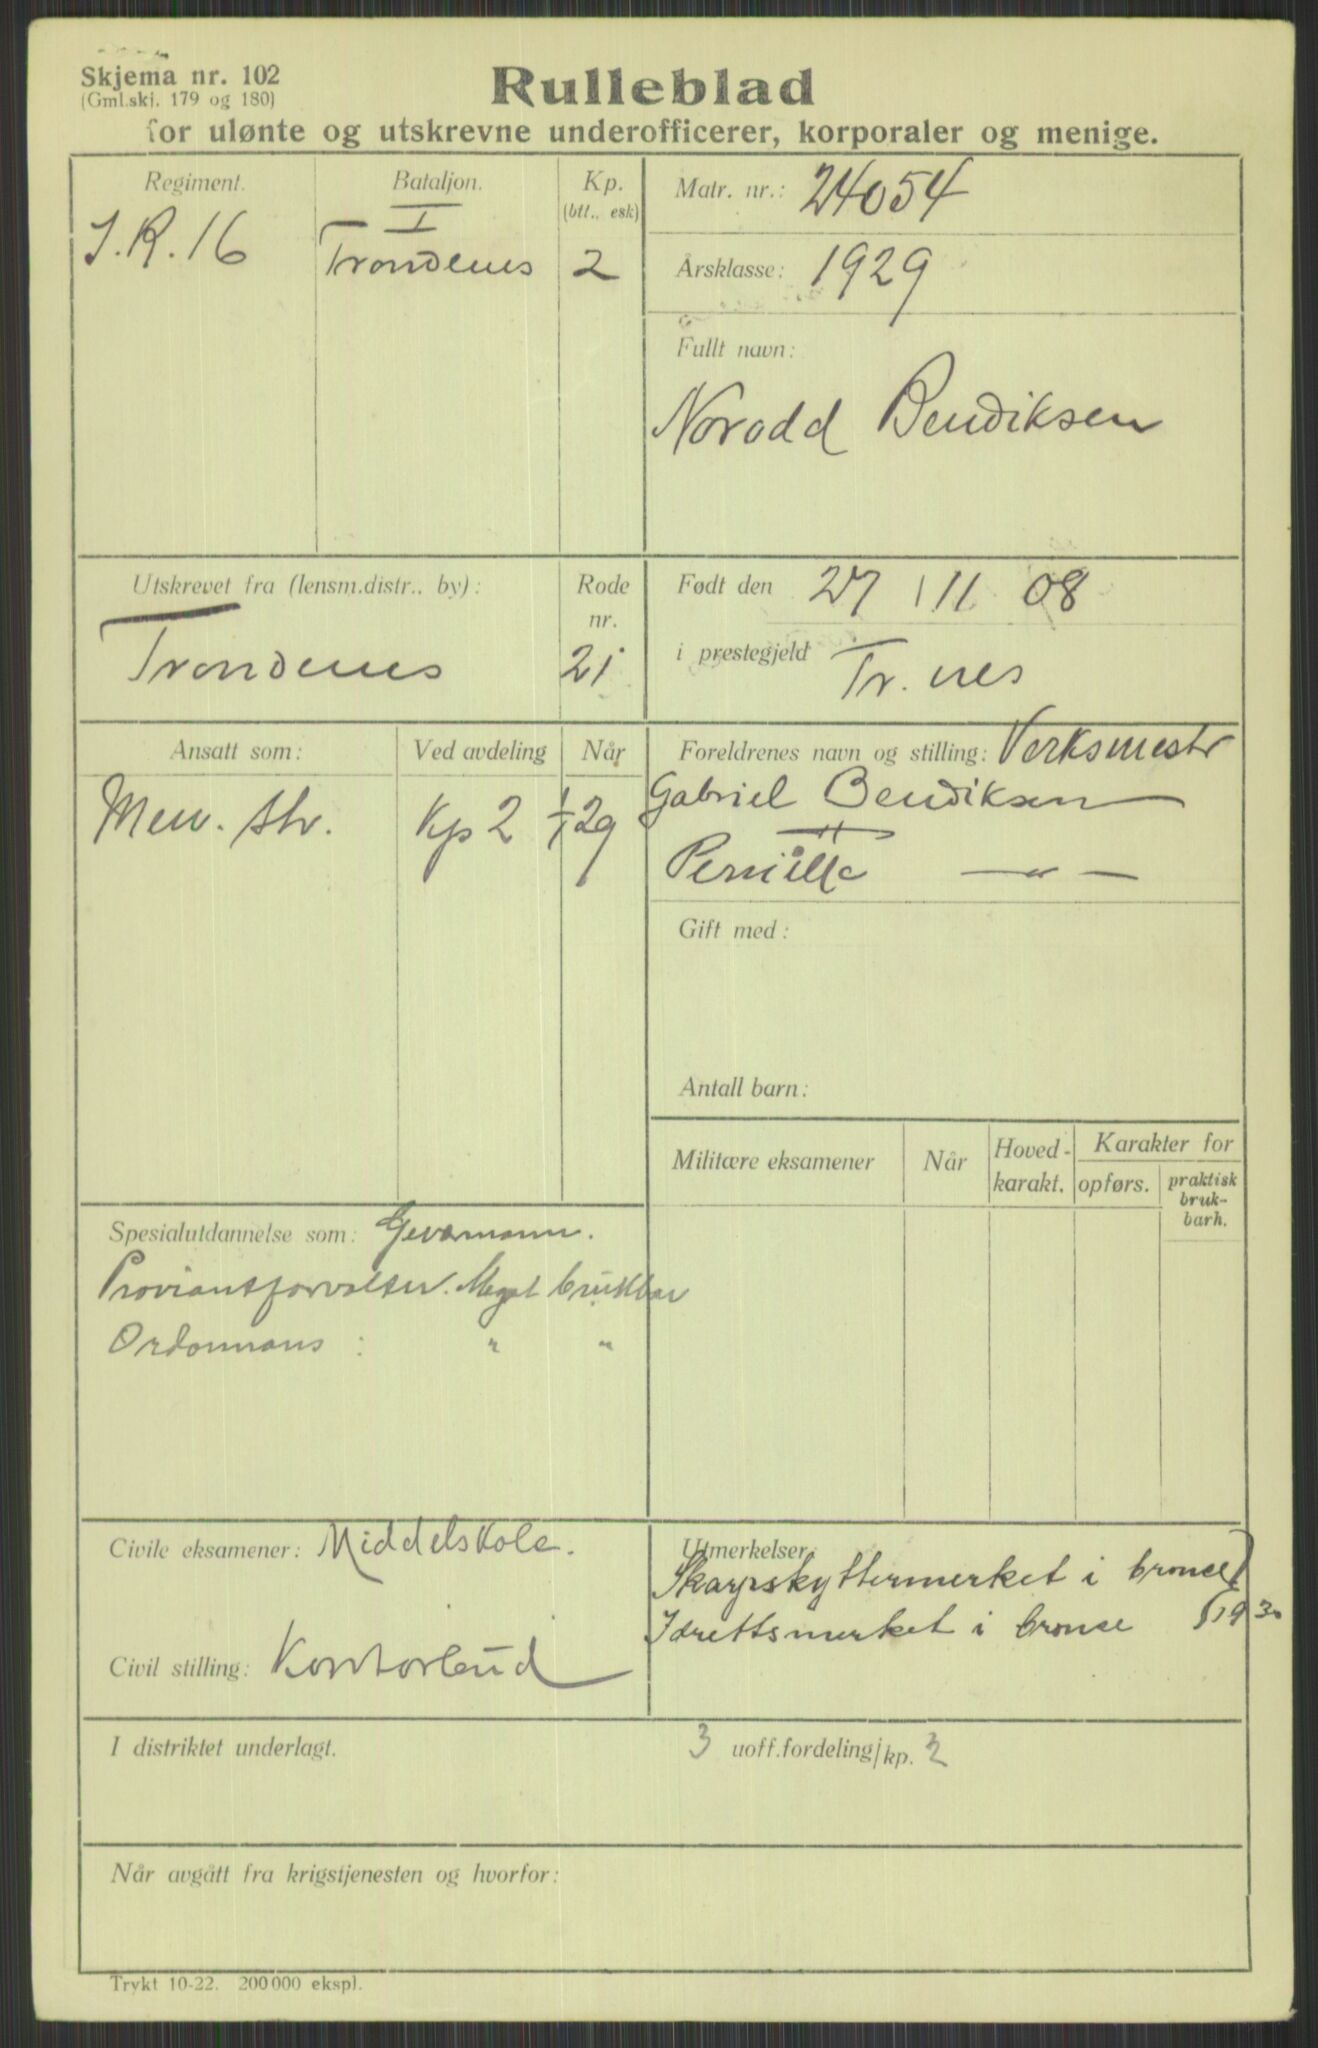 Skjema nr. 102
(Gml.skj. 179 og 180)
Rulleblad
for ulønte og utskrevne underofficerer, korporaler og menige.
Regiment.
J.R.16
Bataljon.
I
Trondenes
Kp.
(btt., esk)
2
Matr. nr.: 24054
Årsklasse: 1929
Fullt navn:
Norodd Bendiksen
Utskrevet fra (lensm.distr., by):
Trondenes
Rode
nr.
21
Født den 27 / 11 08
i prestegjeld Tr.nes
Ansatt som:
Men. str.
Ved avdeling
Kp 2
Når
1/1 29
Foreldrenes navn og stilling: Verksmestr
Gabriel Bendiksen
Pernille — " —
Gift med:
Antall barn:
Militære eksamener
Når
Hoved-
karakt.
Karakter for
opførs.
praktisk
bruk-
barh.
Spesialutdannelse som: Geværmann.
Proviantforvalter. Meget brukbar
Ordonnans : " "
Civile eksamener: Middelskole.
Civil stilling: Kontorbud
Utmerkelser:
Skarpskyttermerket i bronse
Idrettsmerket i bronse } 1930
I distriktet underlagt.
3 uoff.fordeling/kp. 2
Når avgått fra krigstjenesten og hvorfor:
Trykt 10-22. 200 000 ekspl.